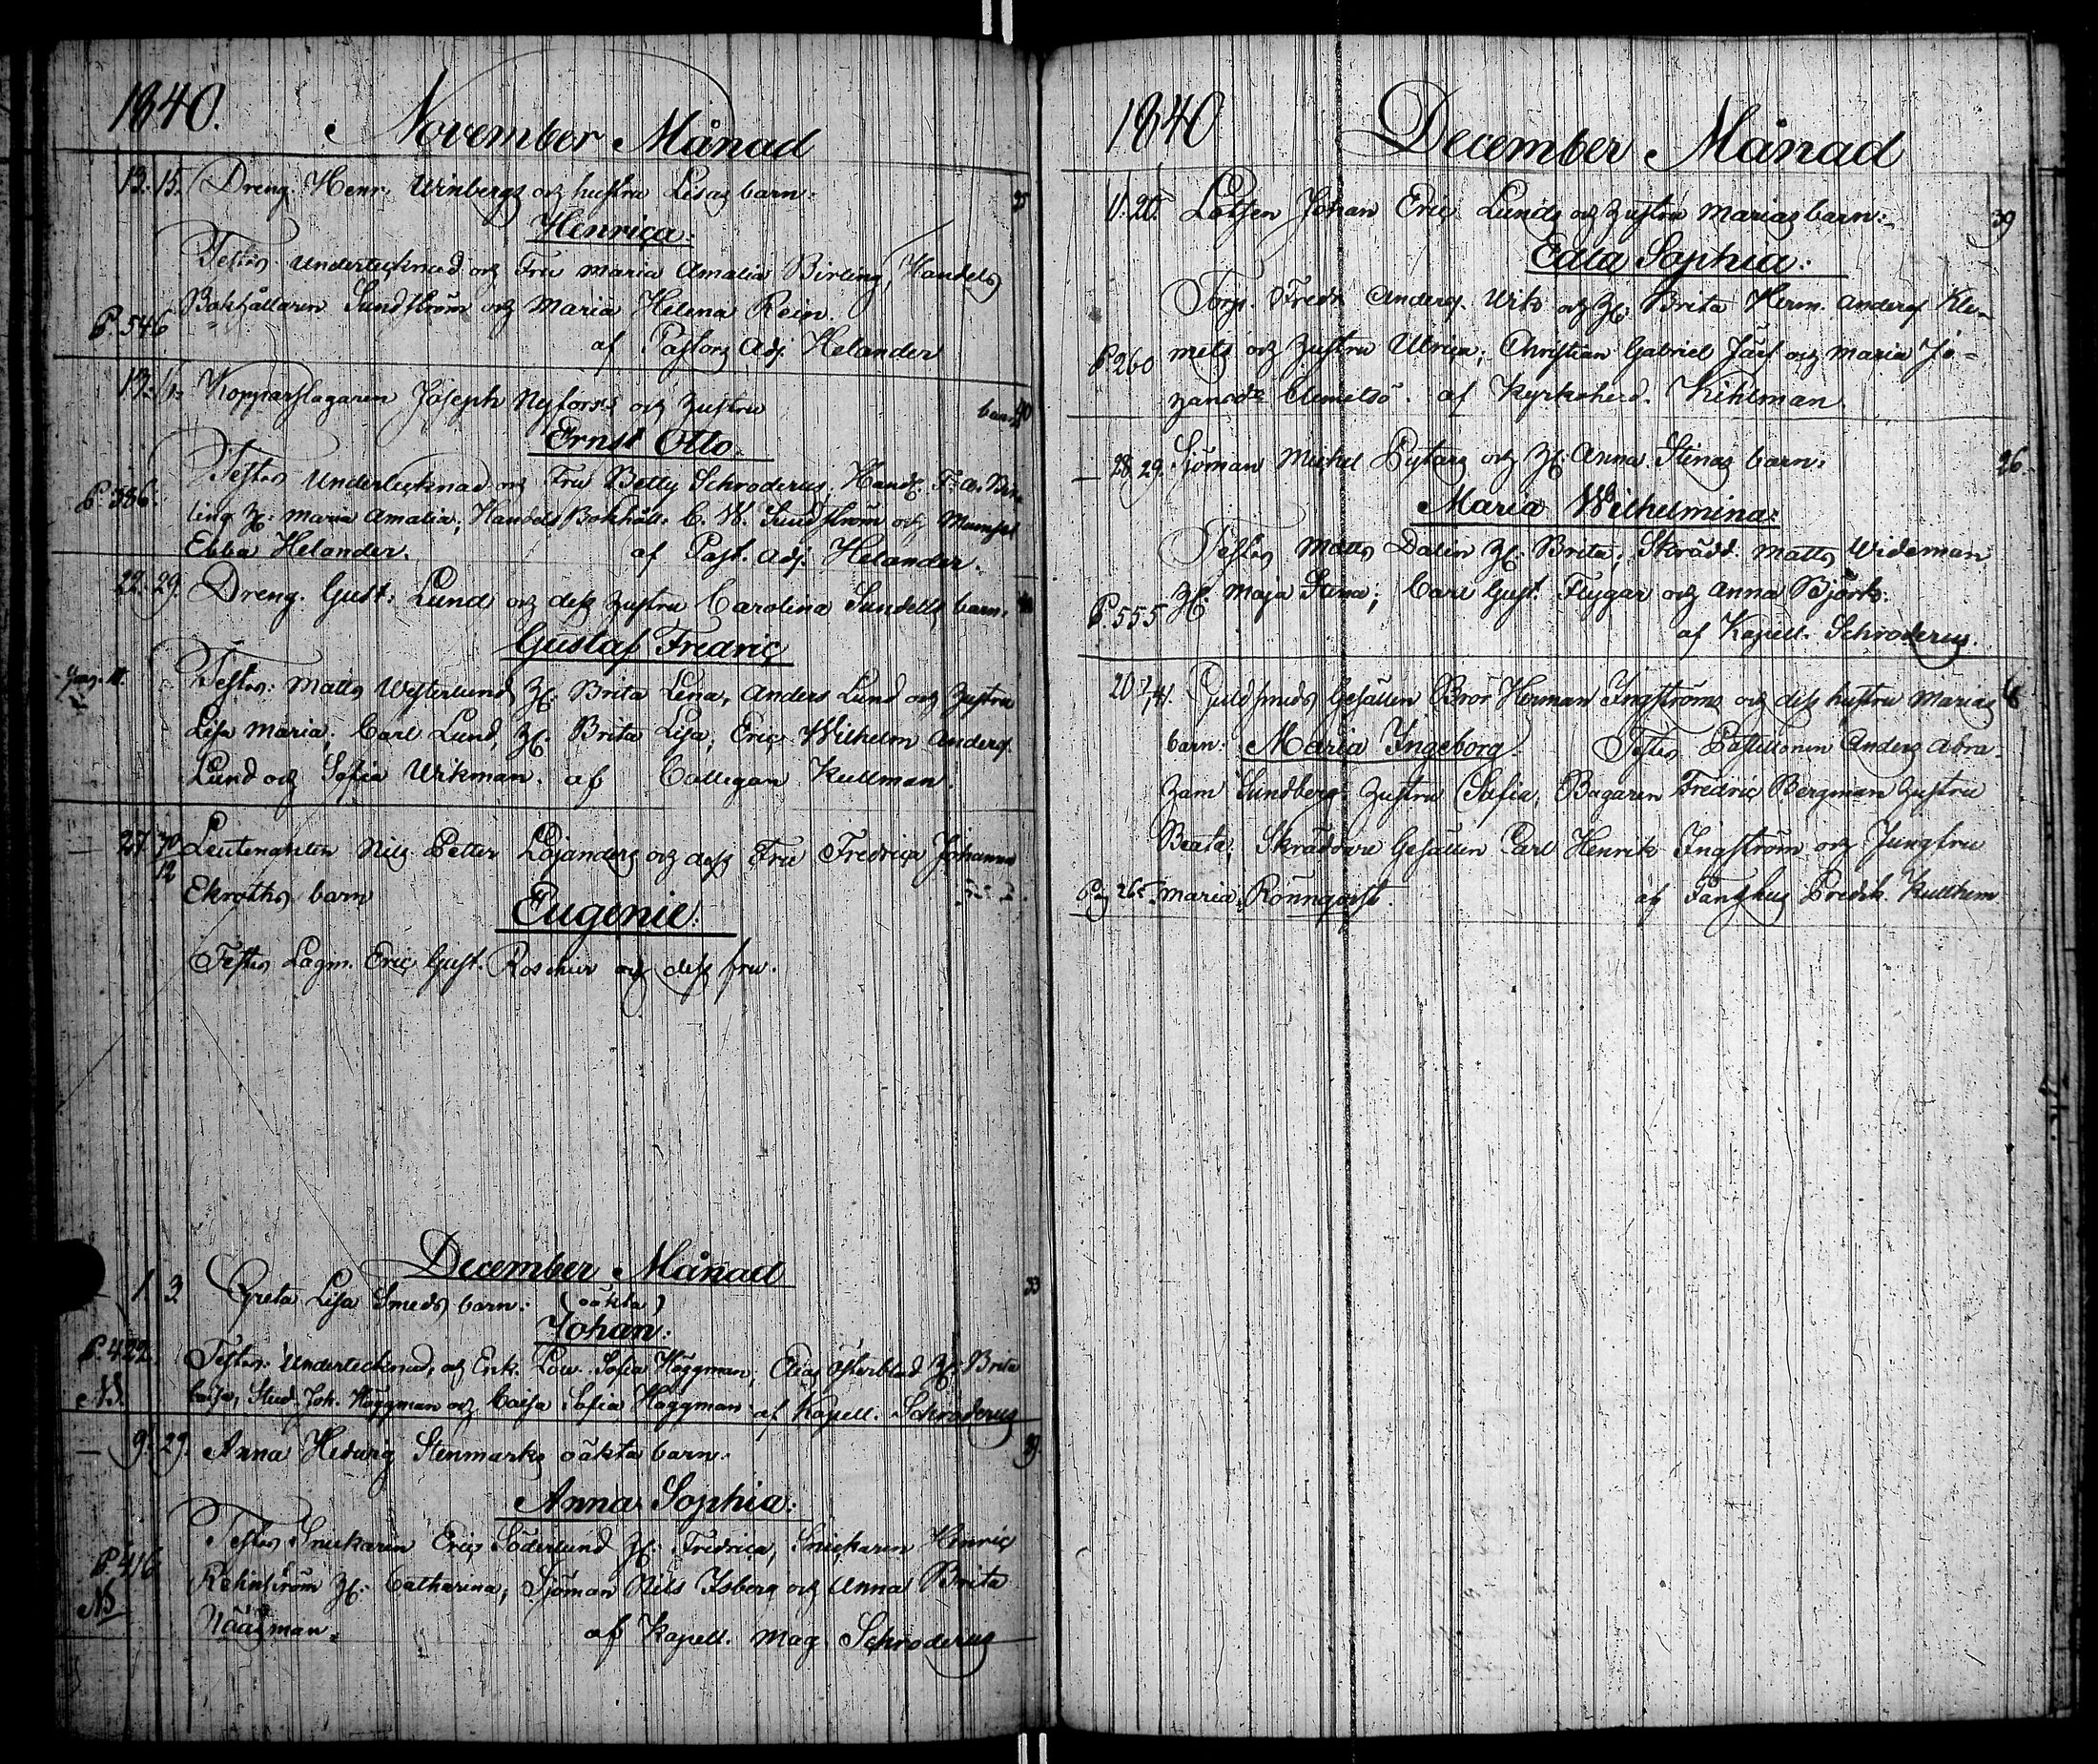 1840.
November Månad
13. 15. Dreng. Henr. Winbergs och hustru Lisas barn: 35
Henrica:
Testes. Undertecknad och Fru Maria Amalia Birling, Handels
Bokhållaren Sundström och Maria Helena Rein.
P. 546
af Pastors Adj Helander
13. Kopparslagaren Joseph Nyforss och hustru barn 40
Ernst Otto.
Testes Undertecknad och Fru Betty Schroderus, Handl. F. A. Bir-
P. 586.
ling h: Maria Amalia; Handels Bokhåll. C. W. Sundström och Mamsel
Ebba Helander. af Past. Adj. Helander.
22. 29. Dreng. Gust. Lund och dess hustru Carolina Sundells barn.
Gustaf Fredric
Testes: Matts Westerlund, h: Brita Lena, Anders Lund och hustru
Lisa Maria; Carl Lund, h: Brita Lisa; Eric Wilhelm Anders.
Lund och Sofia Wikman. af Collegan Kullman.
27. 30/12 Leutenanten Nils Petter Lojanders och dess Fru Fredrica Johanna
Ekroths barn
Eugenie:
Testes Lagm. Eric Gust. Roschier och dess fru.
December Månad
1. 3. Greta Lisa Smeds barn: (oäkta) 33
Johan:
P. 422.
Testes: Undertecknad, och Enk. Lov. Sofia Häggman, Elias Österblad h: Brita
NB. Caisa, Stud. Joh. Häggman och Caisa Sofia Häggman af Kapell. Schroderus
9. 29. Anna Hedvig Stenmarks oäkta barn. 39.
Anna Sophia:
Testes Snickaren Eric Söderlund h: Fredrica, Snickaren Henric
P. 416
Rehnström h: Catharina; Sjöman Nils Isberg och Anna Brita
NB
Näåsman. af Kapell. Mag. Schroderus
1840
December Månad
11. 20. Lotsen Johan Eric Lunds och hustru Marias barn: 39
Edla Sophia:
Torp. Fredr. Anders. Wik och h: Brita Herm. Anders. Kle-
P. 260 mets och hustru Ulrica; Christian Gabriel Järf och Maria Jo-
hansdr Clemetsö. af Kyrkoherd. Kihlman.
28. 29. Sjöman Michel Pytars och h: Anna Stinas barn: 26.
Maria Wilhelmina:
Testes Matts Dalin h: Brita; Skrädd. Matts Wideman
h: Maja Stina; Carl Gust. Flygar och Anna Björk.
P. 555
af Kapell. Schroderus.
20. 1/41. Guldsmeds Gesällen Bror Herman Ingströms och dess hustru Marias
barn: Maria Ingeborg. Testes Postillionen Anders Abra-
ham Sundberg hustru Sofia, Bagaren Fredric Bergman hustru
Beata; Skräddare Gesällen Carl Henrik Ingström och Jungfru
Maria Rönnqvist. af Fånghus Predik. Kullhem